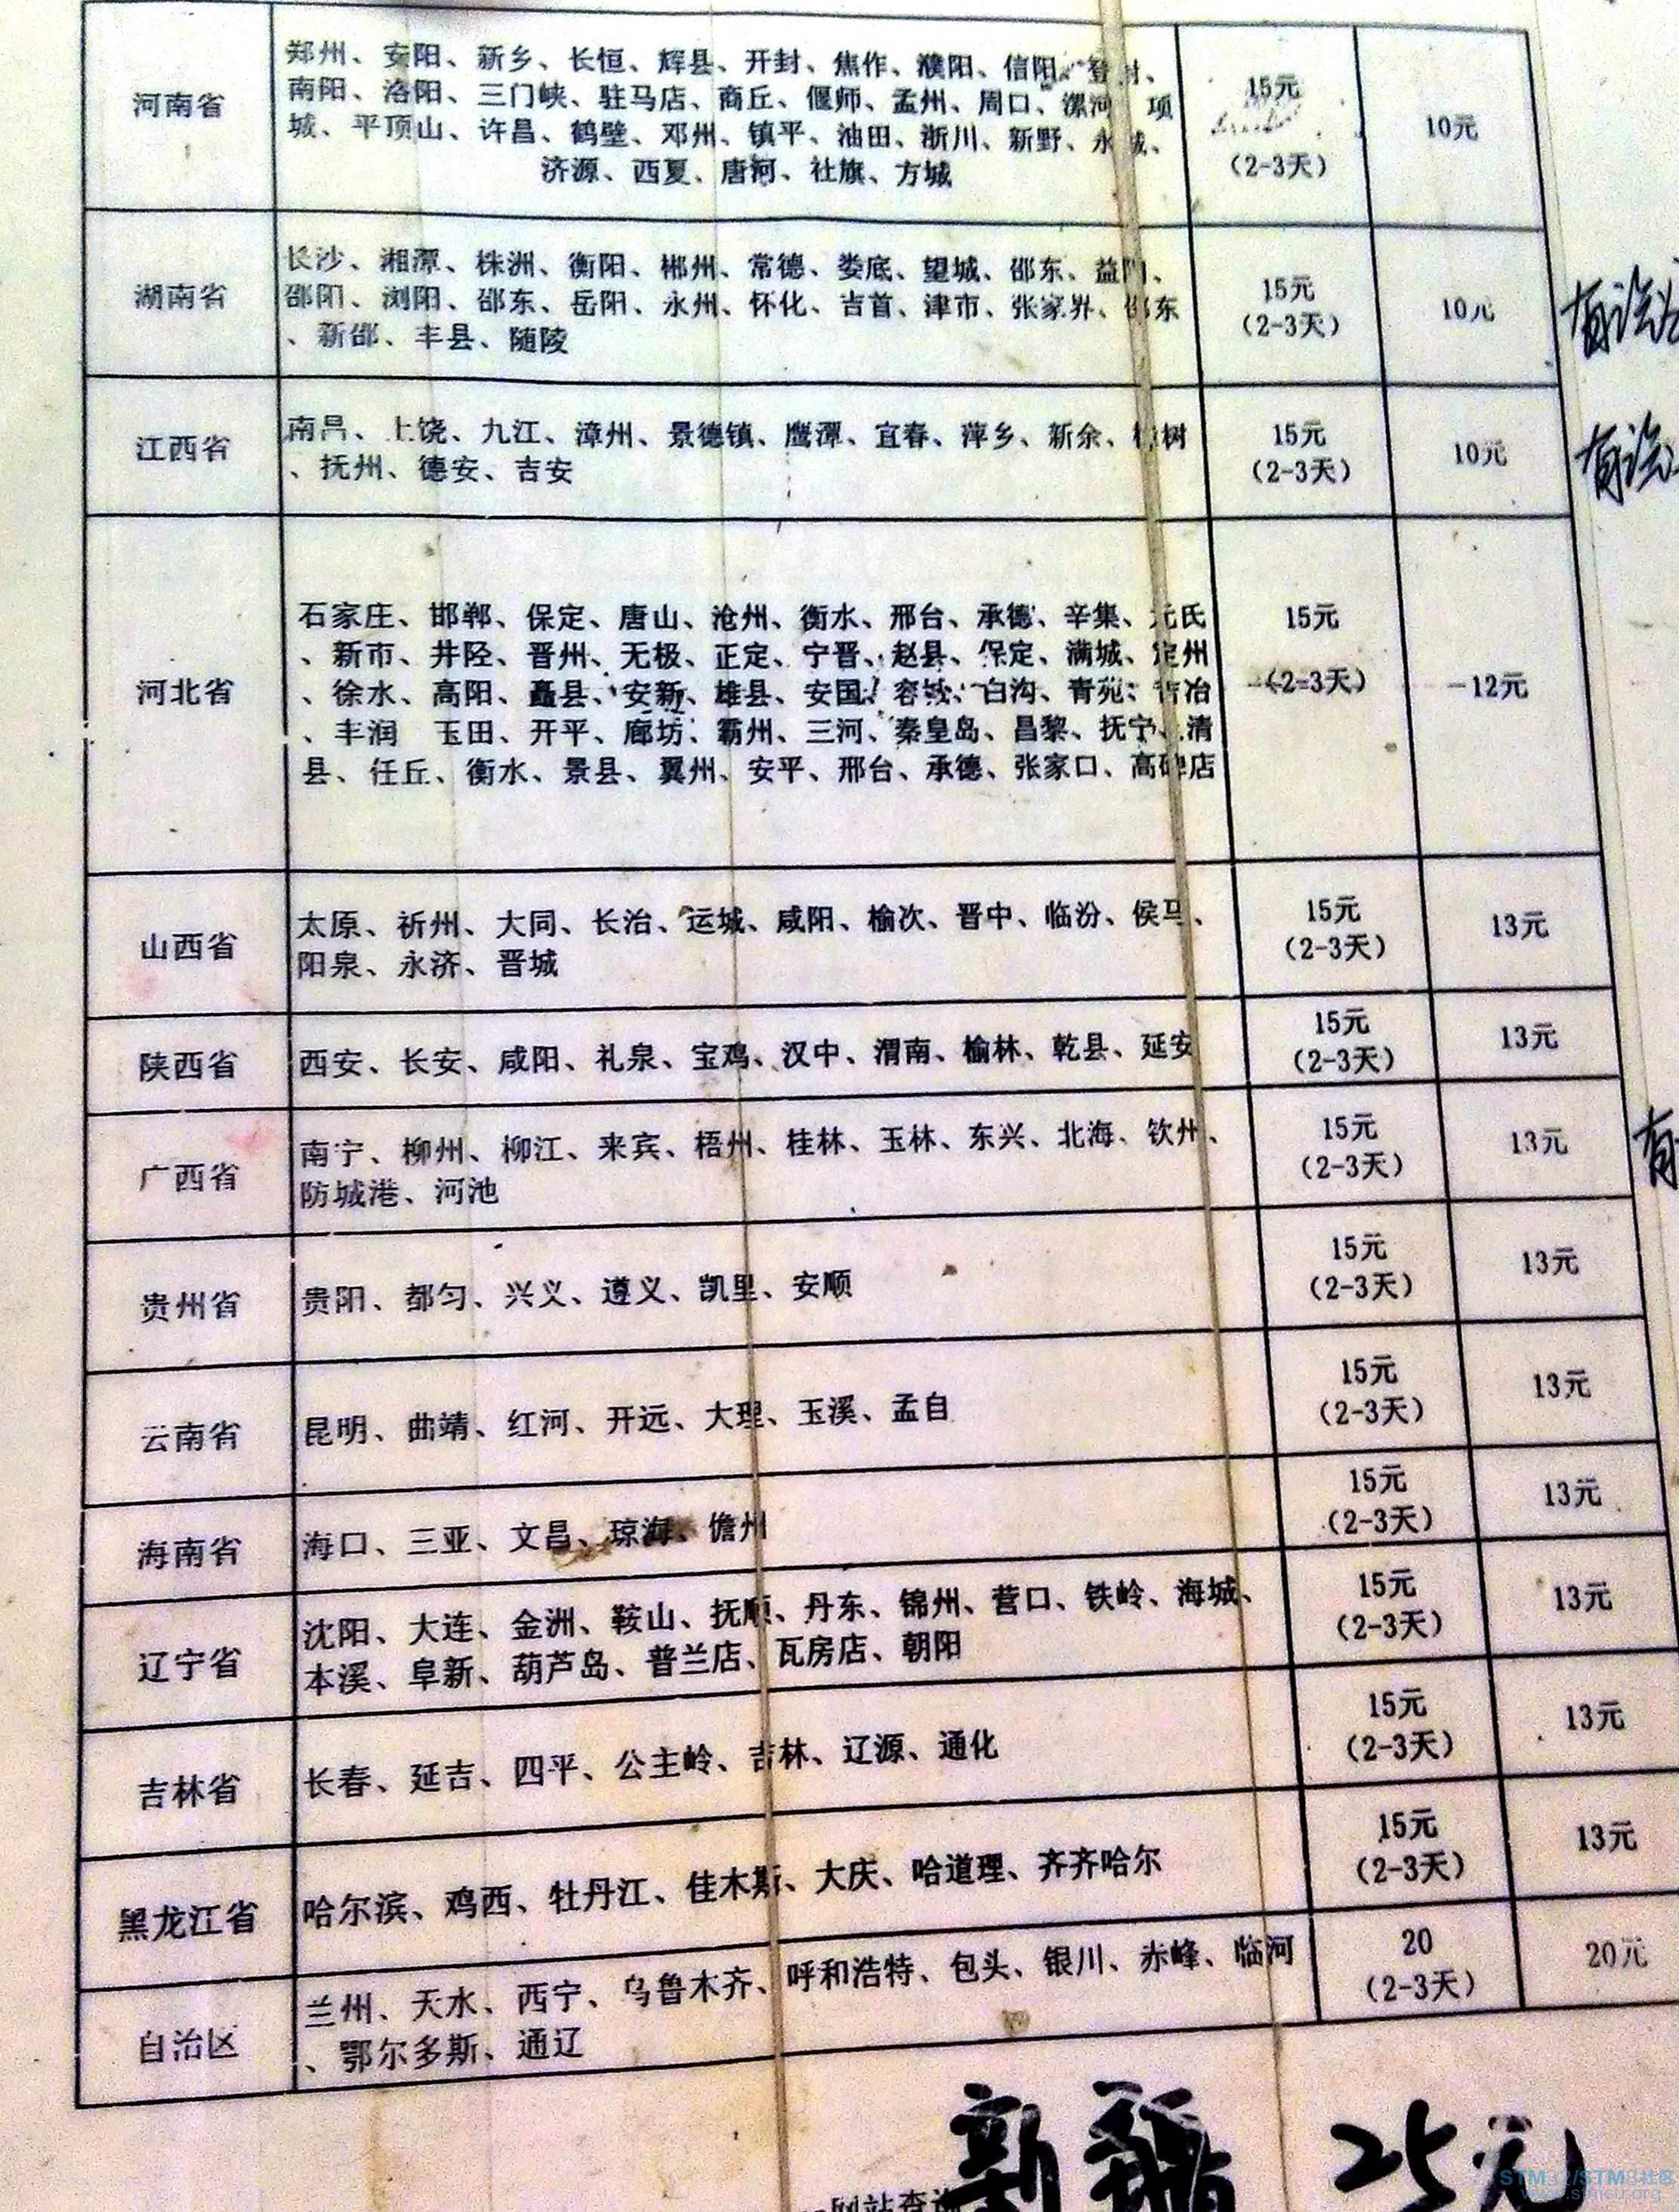 河南省
郑州、安阳、新乡、长恒、辉县、开封、焦作、濮阳、信阳、登封、
南阳、洛阳、三门峡、驻马店、商丘、偃师、孟州、周口、漯河、项
城、平顶山、许昌、鹤壁、邓州、镇平、油田、浙川、新野、永城、
济源、西夏、唐河、社旗、方城
15元
(2-3天)
10元
湖南省
长沙、湘潭、株洲、衡阳、郴州、常德、娄底、望城、邵东、益阳、
邵阳、浏阳、邵东、岳阳、永州、怀化、吉首、津市、张家界、邵东
、新邵、丰县、随陵
15元
(2-3天)
10元
江西省
南昌、上饶、九江、漳州、景德镇、鹰潭、宜春、萍乡、新余、樟树
、抚州、德安、吉安
15元
(2-3天)
10元
河北省
石家庄、邯郸、保定、唐山、沧州、衡水、邢台、承德、辛集、元氏
、新市、井陉、晋州、无极、正定、宁晋、赵县、保定、满城、定州
、徐水、高阳、蠡县、安新、雄县、安国、容城、白沟、青苑、古冶
、丰润 玉田、开平、廊坊、霸州、三河、秦皇岛、昌黎、抚宁、清
县、任丘、衡水、景县、翼州、安平、邢台、承德、张家口、高碑店
15元
(2-3天)
12元
山西省
太原、祈州、大同、长治、运城、咸阳、榆次、晋中、临汾、侯马、
阳泉、永济、晋城
15元
(2-3天)
13元
陕西省
西安、长安、咸阳、礼泉、宝鸡、汉中、渭南、榆林、乾县、延安
15元
(2-3天)
13元
广西省
南宁、柳州、柳江、来宾、梧州、桂林、玉林、东兴、北海、钦州、
防城港、河池
15元
(2-3天)
13元
有
贵州省
贵阳、都匀、兴义、遵义、凯里、安顺
15元
(2-3天)
13元
云南省
昆明、曲靖、红河、开远、大理、玉溪、孟自
15元
(2-3天)
13元
海南省
海口、三亚、文昌、琼海、儋州
15元
(2-3天)
13元
辽宁省
沈阳、大连、金洲、鞍山、抚顺、丹东、锦州、营口、铁岭、海城、
本溪、阜新、葫芦岛、普兰店、瓦房店、朝阳
15元
(2-3天)
13元
吉林省
长春、延吉、四平、公主岭、吉林、辽源、通化
15元
(2-3天)
13元
黑龙江省
哈尔滨、鸡西、牡丹江、佳木斯、大庆、哈道理、齐齐哈尔
15元
(2-3天)
13元
自治区
兰州、天水、西宁、乌鲁木齐、呼和浩特、包头、银川、赤峰、临河
、鄂尔多斯、通辽
20
(2-3天)
20元
新疆 25元
网站查询
STM32/STM8社区
www.stmcu.org